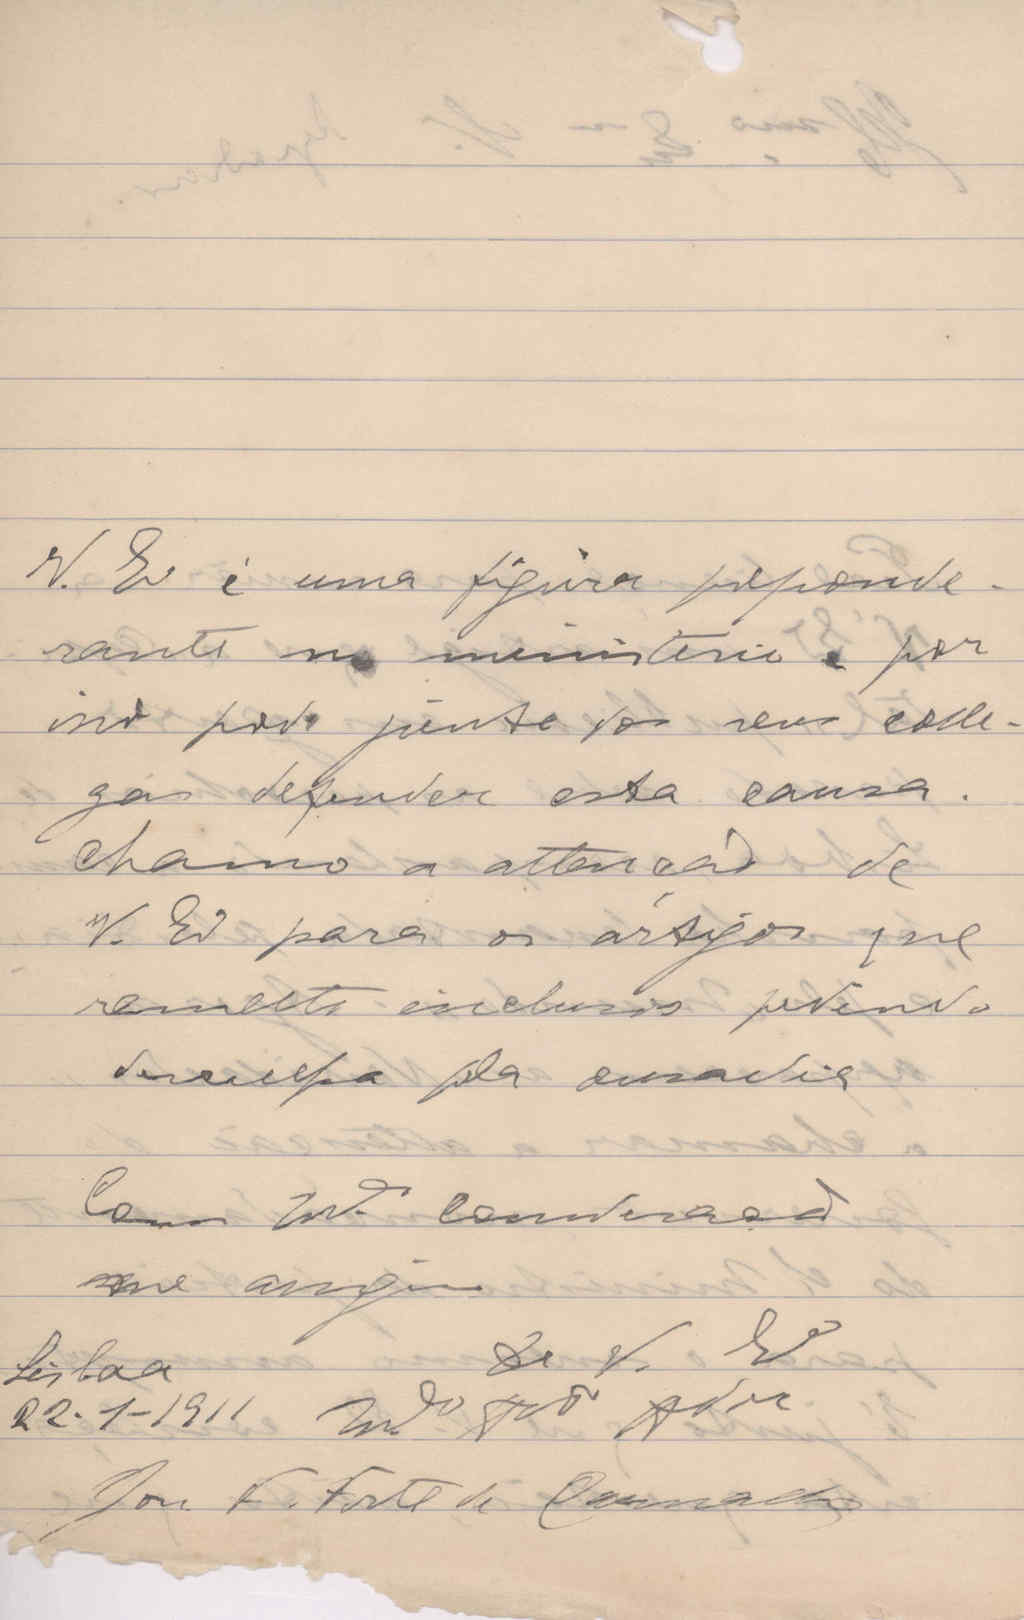 V. Exª é uma figura preponde-
rante no ministerio e por
isso pode junto dos seus colle-
gas defender esta causa.
Chamo a attenção de
V. Exª para os artigos que
remetto inclusos pedindo
desculpa pla ousadia
Com mtª consideração
me assigno
De V. Exª
Lisboa
22-1-1911 Mto Attº Adm
José F. Forte de